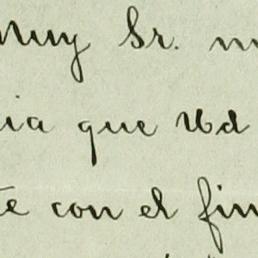 Muy Sr. m
ia que Ud
te con el fin